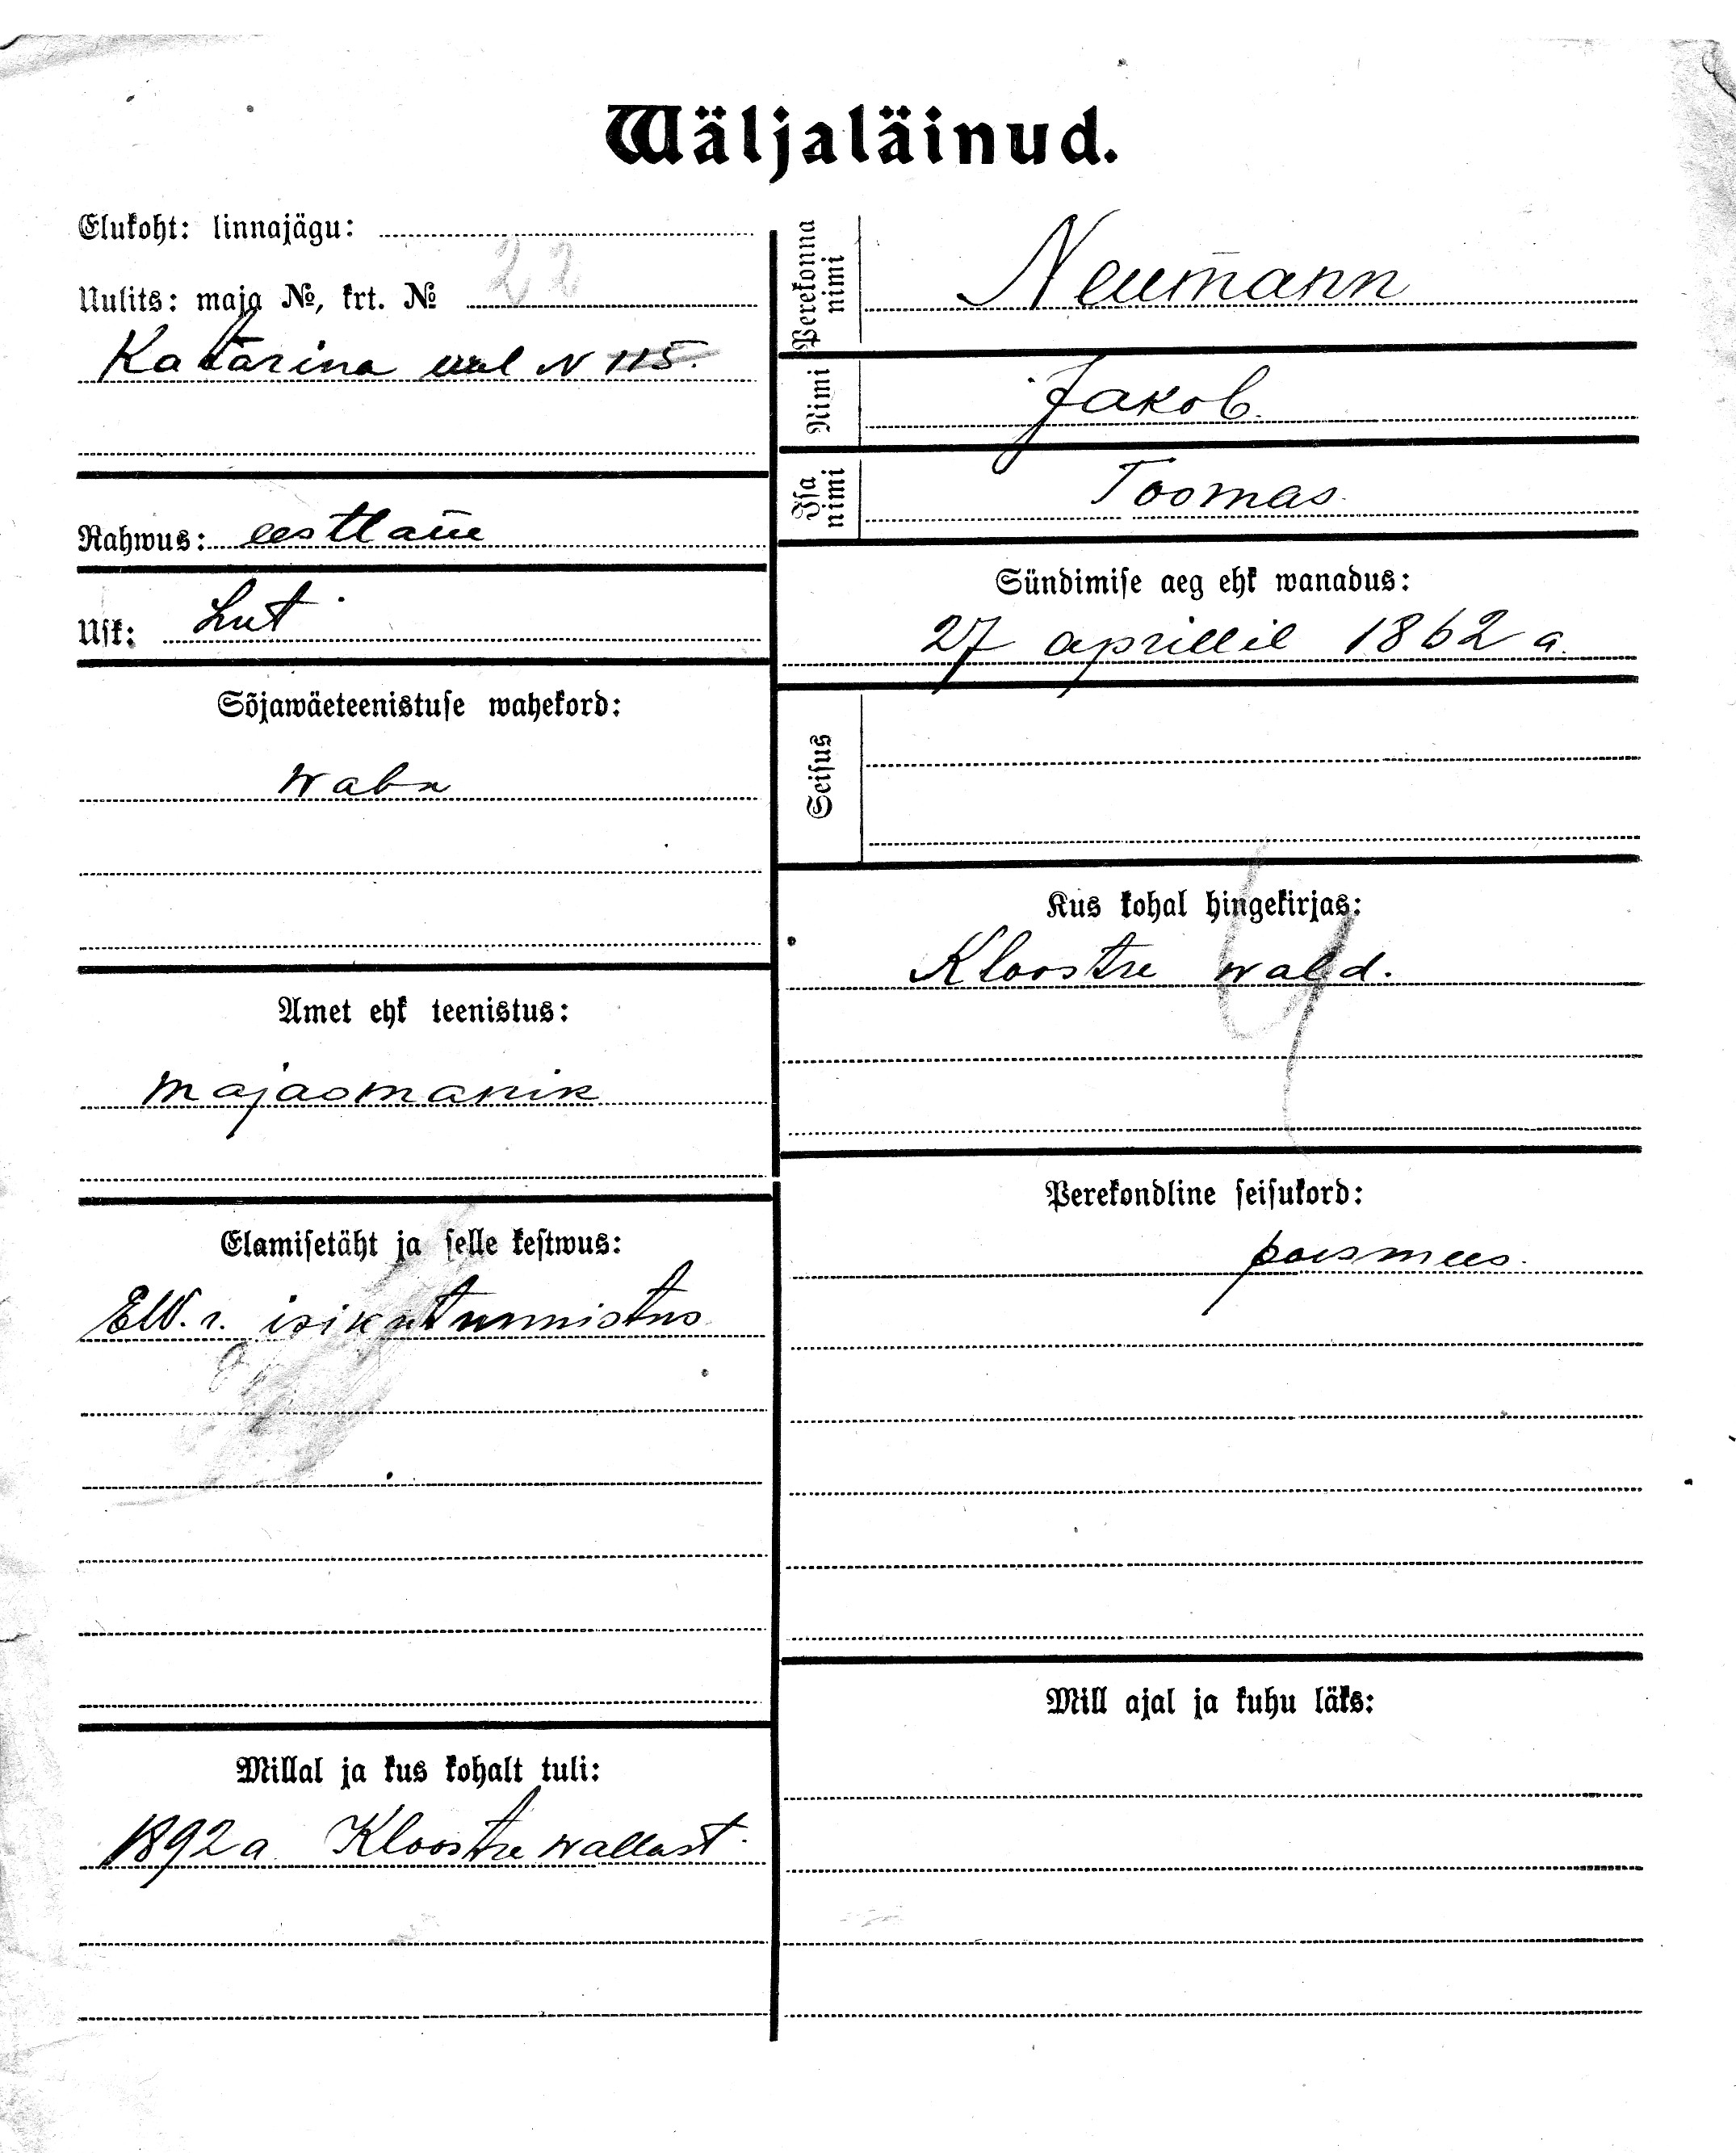 Wäljaläinud.
Elukoht: linnajägu:
Uulits: maja №, krt. № 22
Katarina uul N 115.
Rahwus: eestlane
Usk: Lut
Sõjawäeteenistuse wahekord:
waba
Amet ehk teenistus:
majaomanik
Elamisetäht ja selle kestwus:
EW. r. isikutunnistus
Millal ja kus kohalt tuli:
1892 a. Kloostre wallast.
Perekonna nimi
Neumann
Nimi
Jakob.
Isa nimi
Toomas.
Sündimise aeg ehk wanadus:
27 aprillil 1862 a.
Seisus
Kus kohal hingekirjas:
Kloostre wald.
Perekondline seisukord:
poismees.
Mill ajal ja kuhu läks: